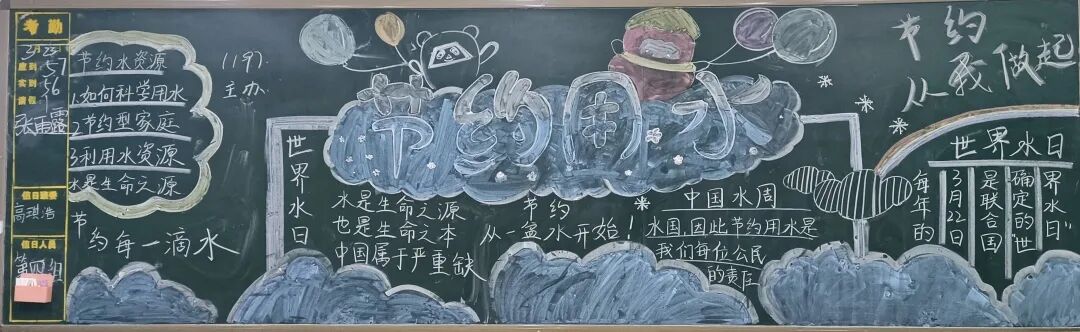 考勤
2月23
应到 57
实到 56
请假 1
张雨露
值日班委
高琪浩
值日人员
第四组
节约水资源
1.如何科学用水
2.节约型家庭
3.利用水资源
水是生命之源
节约每一滴水
(19)
主办
世界水日
节约用水
水是生命之源
也是生命之本
中国属于严重缺
节约
从一盆水开始!
中国水周
水国,因此节约用水是
我们每位公民
的责任
节约
从我做起
世界水日
每年的
3月22日
是联合国
确定的世
界水日